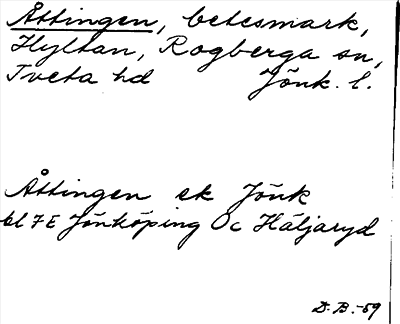 Åttingen, betesmark,
Hyltan, Rogberga sn,
Tveta hd Jönk. l.
Åttingen ek Jönk
bl 7E Jönköping Oc Häljaryd
D.B.-59